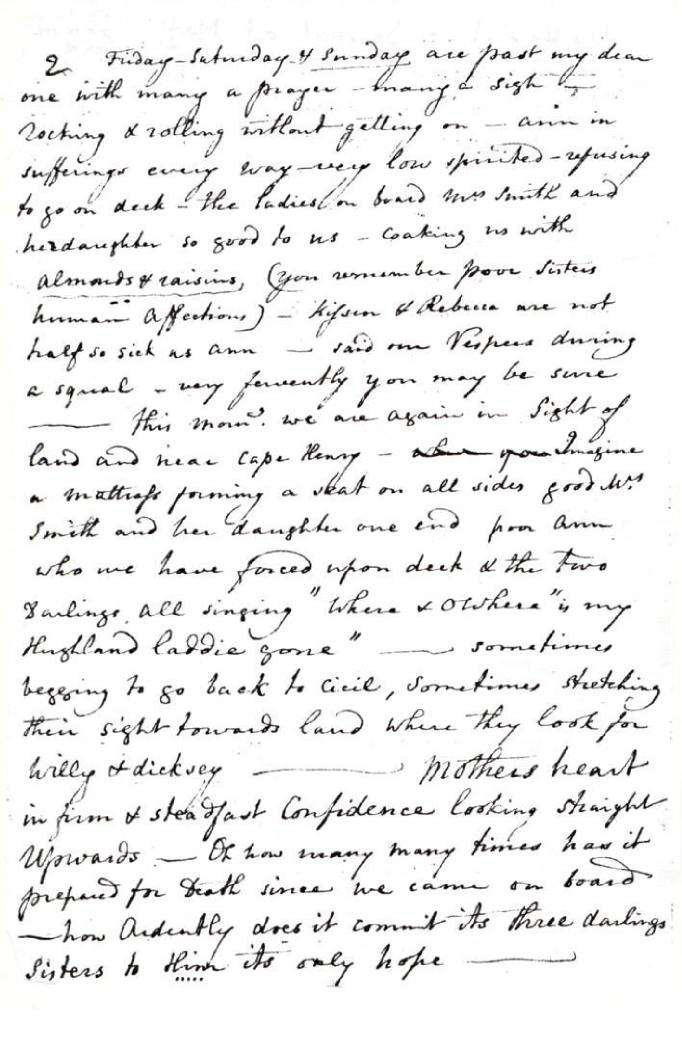 2 Friday - Saturday - & Sunday are past my dear
one with many a prayer - many a sigh -
rocking & rolling without getting on - ann in
sufferings every way - very low spirited - refusing
to go on deck - the ladies on board Mrs Smith and
her daughter so good to us - coaking us with
almonds & raisins, (you remember poor Sisters
human affections) - Kissen & Rebecca are not
half so sick as ann - said our Vespers during
a squal - very fervently you may be sure
— this morng. we are again in Sight of
land and near Cape Henry - Imagine
a mattrass forming a seat on all sides good Mrs
Smith and her daughter one end poor Ann
who we have forced upon deck & the Two
Darlings all singing "Where & O Where" is my
Highland laddie gone" — sometimes
begging to go back to Cicil, sometimes stretching
their sight towards land where they look for
Willy & dicksey — Mothers heart
in firm & steadfast Confidence looking straight
Upwards — Oh how many many times has it
prepared for Death since we came on board
— how Ardently does it commit its three darlings
Sisters to Him its only hope —